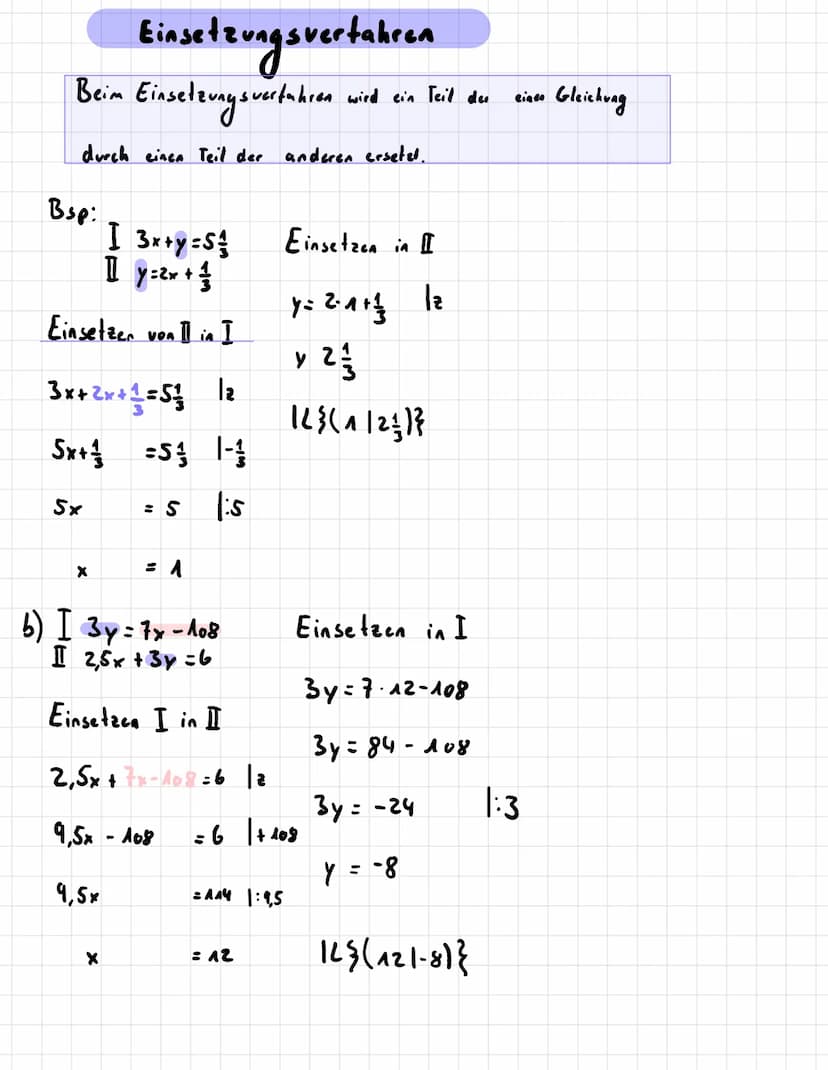 Einsetzungsverfahren
Beim Einsetzungsverfahren wird ein Teil der einen Gleichung
durch einen Teil der anderen ersetzt.
Bsp:
I 3x+y=5 1/3
II y=2x + 1/3
Einsetzen von II in I
3x+2x+1/3=5 1/3 |z
5x+1/3 =5 1/3 |-1/3
5x = 5 |:5
x = 1
Einsetzen in II
y= 2·1+1/3 |z
y 2 1/3
IL{(1|2 1/3)}
b) I 3y=7x-108
II 2,5x+3y=6
Einsetzen I in II
2,5x+7x-108=6 |z
9,5x - 108 =6 |+108
9,5x =114 |:9,5
x = 12
Einsetzen in I
3y=7·12-108
3y=84-108
3y= -24 |:3
y = -8
IL{(12|-8)}